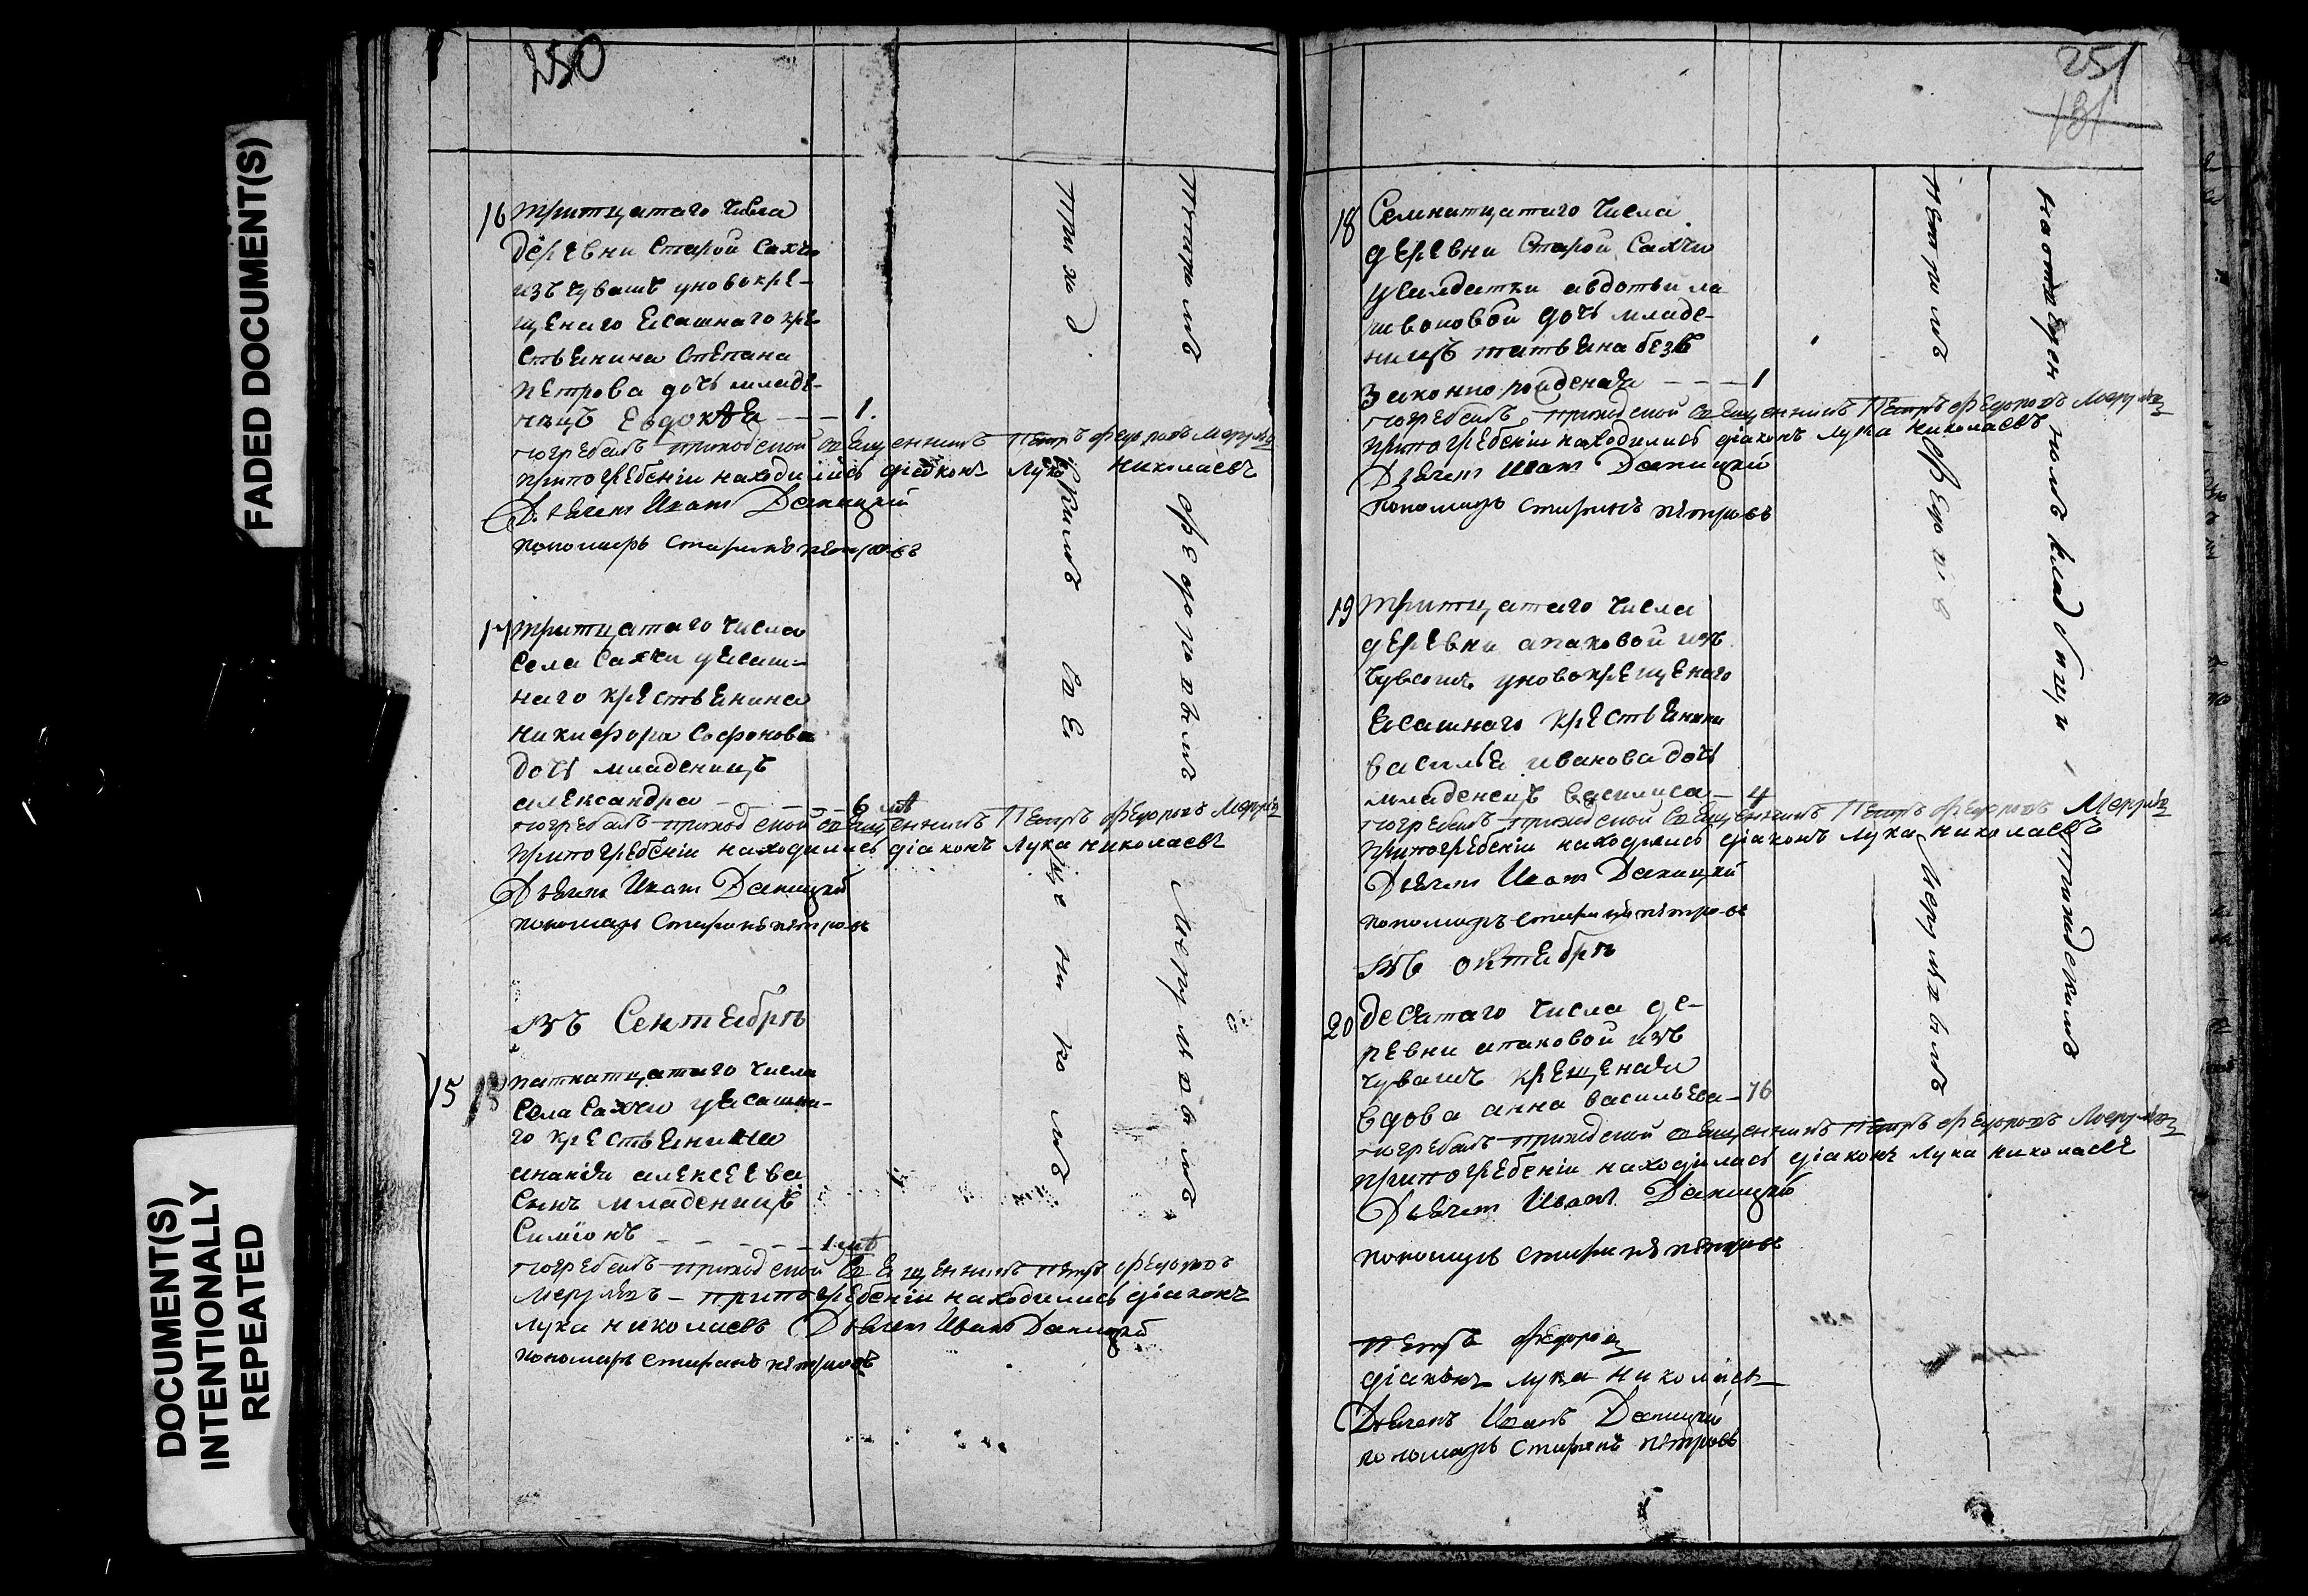 FADED DOCUMENT(S)
DOCUMENT(S)
INTENTIONALLY
REPEATED
250
16 тритцатаго числа
деревни Старой Сахчи
изъ чувашъ уновокре-
щенаго ясашнаго кре
стьянина Степана
Петрова дочь младе-
нецъ Евдокѣя - - - 1.
погребалъ приходской священникъ Петръ Федоровъ
припогребеніи находились діаконъ Лука Николаевъ
Дьячекъ Иванъ
пономарь Стефанъ Петровъ
17 тритцатаго числа
села Сахчи уясаш-
наго крестьянина
Никифора Софонова
дочь младенецъ
Александра - - - - 6 лѣ
погребалъ приходской священникъ Петръ Федоровъ
припогребеніи находились діаконъ Лука Николаевъ
Дьячекъ Иванъ
пономарь Стефанъ Петровъ
въ Сентябрѣ
15 пятнатцатаго числа
села Сахчи уясашна-
го крестьянина
Алексеева
сынъ младенецъ
Симіонъ - - - - - 1 лѣ
погребалъ приходской священникъ Петръ Федоровъ
припогребеніи находились діаконъ
Лука Николаевъ Дьячекъ Иванъ
пономарь Стефанъ Петровъ
приход
скимъ
свя
щенникомъ
Петромъ
Федоровымъ
251
181
18 Семнатцатаго числа
деревни Старой Сахчи
усалдатки Авдотьи
дочь младе-
нецъ Татьяна безъ
законно рожденая - - - 1
погребалъ приходской священникъ Петръ Федоровъ
припогребеніи находились діаконъ Лука Николаевъ
Дьячекъ Иванъ
пономарь Стефанъ Петровъ
19 тритцатаго числа
деревни Апаковой изъ
чувашъ уновокрещенаго
ясашнаго крестьянина
Василья Иванова дочь
младенецъ Василиса - 4
погребалъ приходской священникъ Петръ Федоровъ
припогребеніи находились діаконъ Лука Николаевъ
Дьячекъ Иванъ
пономарь Стефанъ Петровъ
въ октябрѣ
20 десятаго числа де-
ревни Апаковой изъ
чувашъ крещеная
вдова Анна Васильева - 76
погребалъ приходской священникъ Петръ Федоровъ
припогребеніи находились діаконъ Лука Николаевъ
Дьячекъ Иванъ
пономарь Стефанъ Петровъ
Петръ Федоровъ
діаконъ Лука Николаевъ
Дьячекъ Иванъ
пономарь Стефанъ Петровъ
Петромъ
наотведенномъ кладбищи
приходскимъ